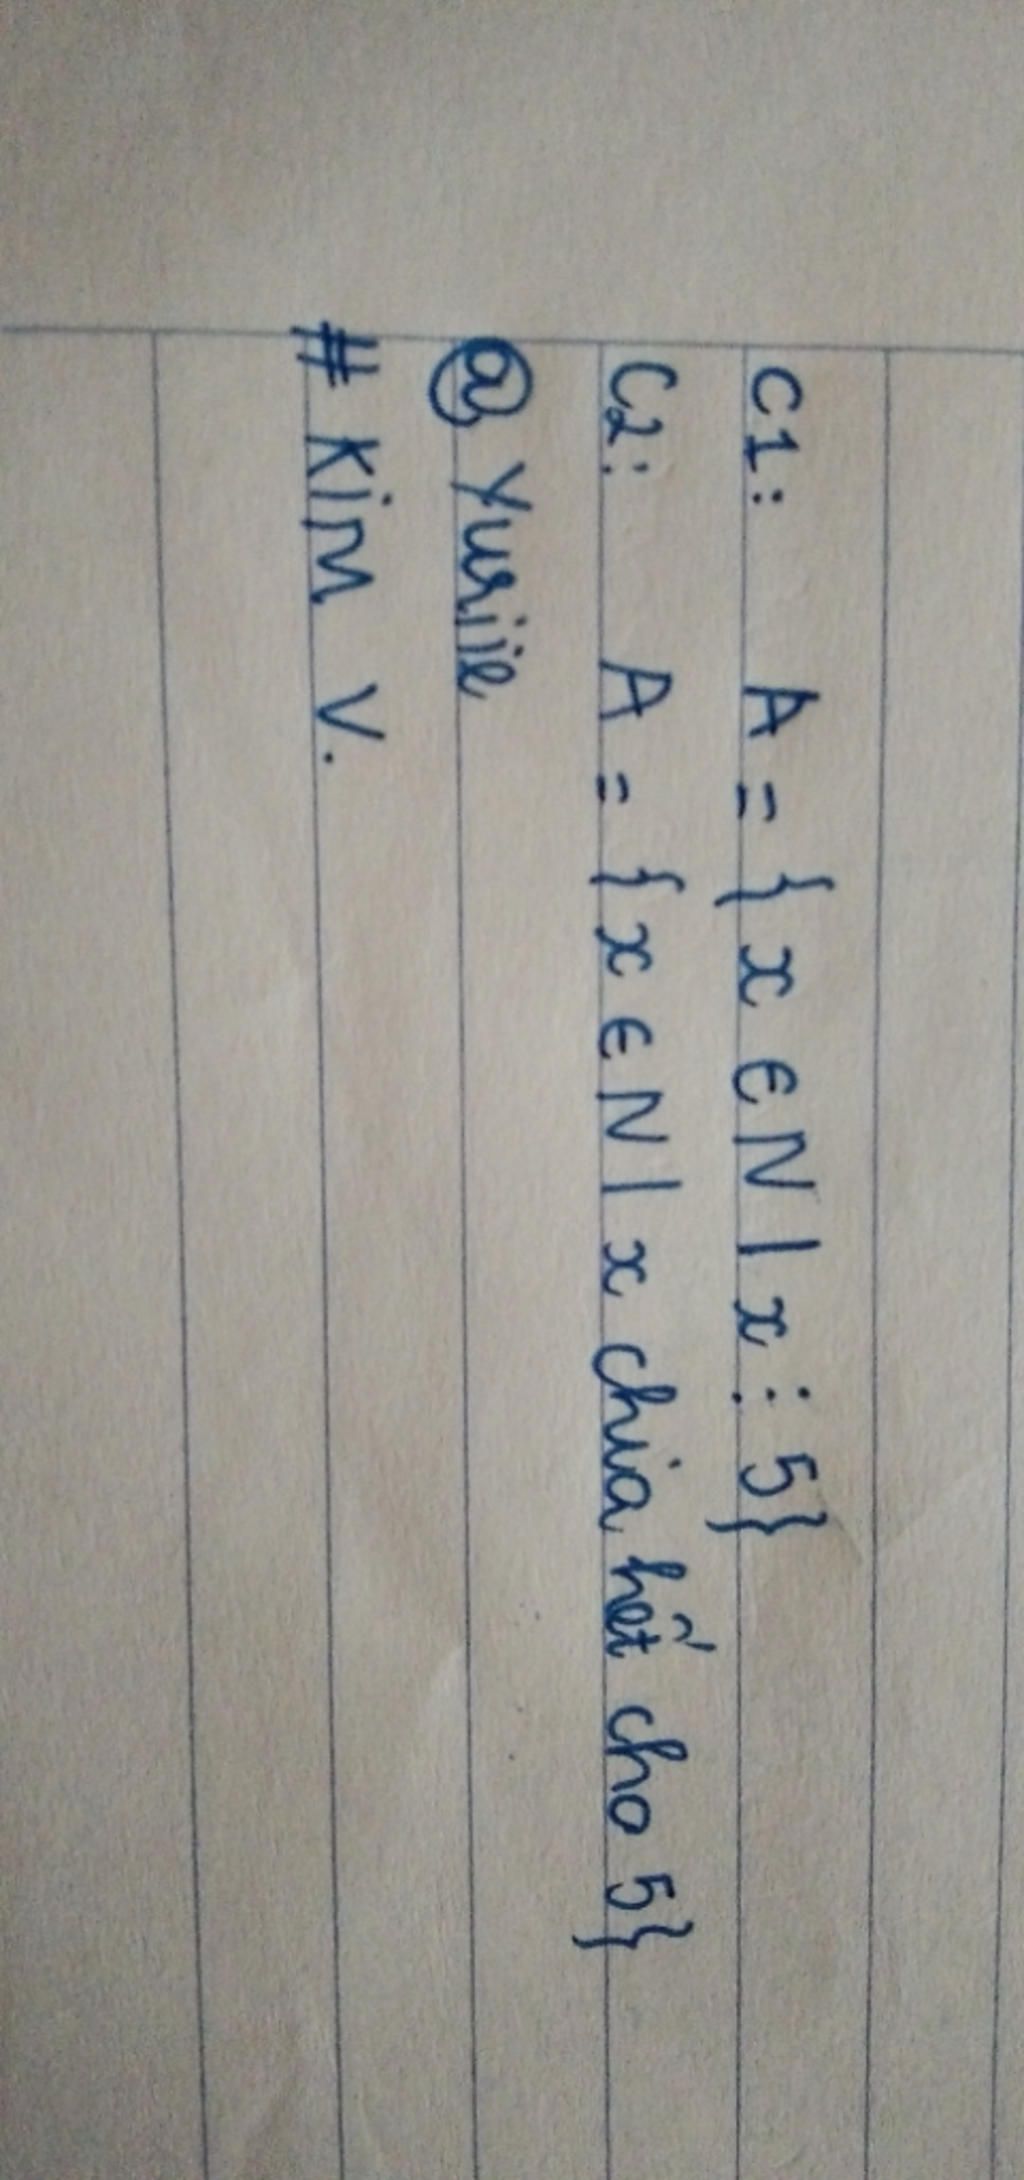 C1: A = { x ∈ N | x ⋮ 5}
C2: A = { x ∈ N | x chia hết cho 5}
@ Yuriie
# Kim V.